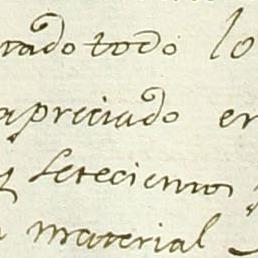 rado todo lo
apreciado en
y setecientos
material